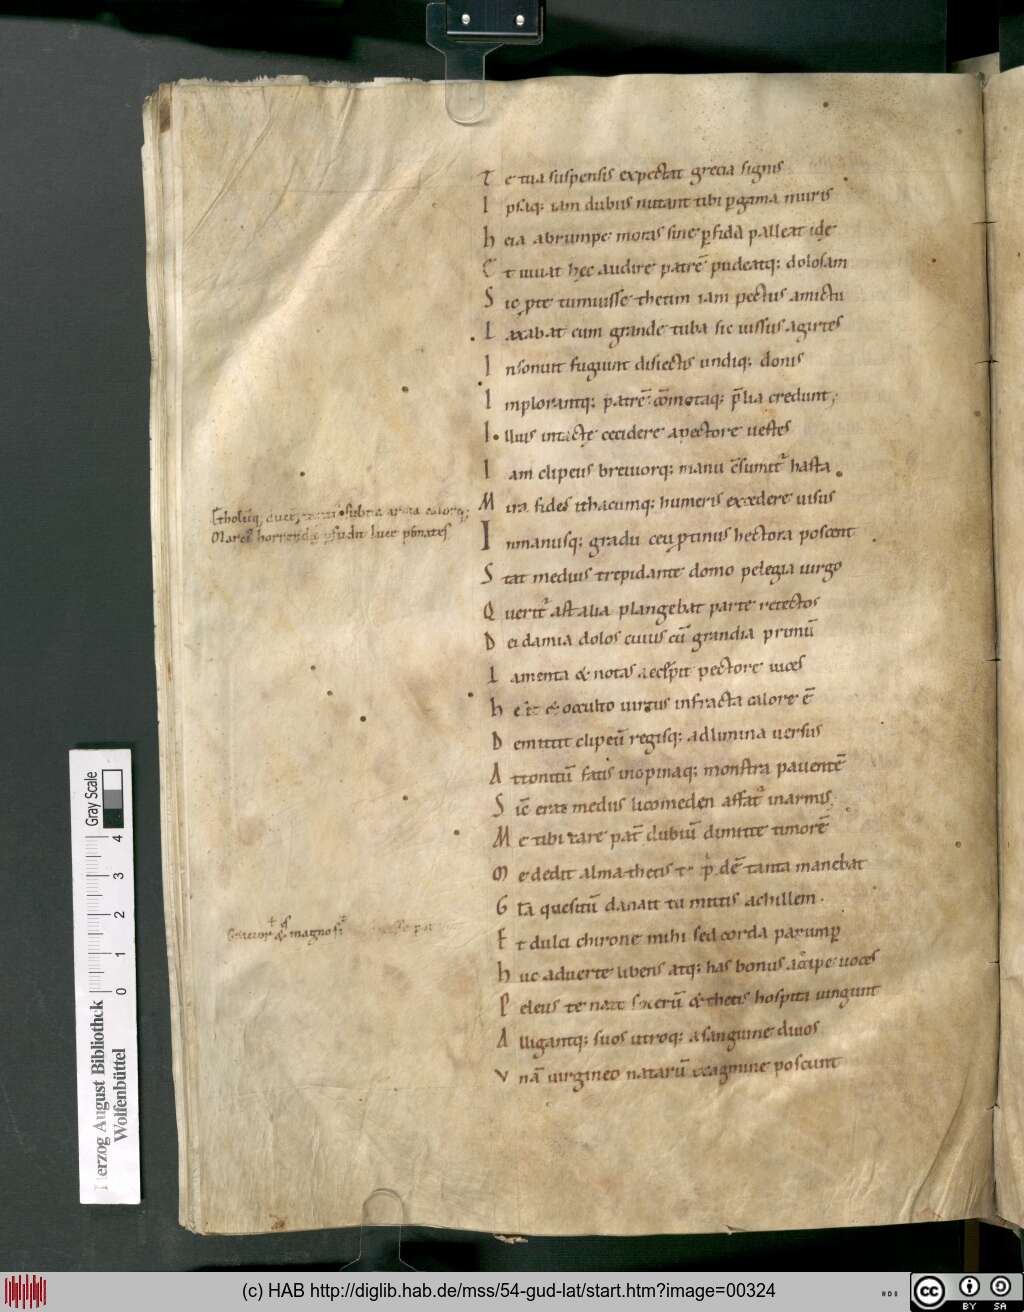 T e tua suspensis expectat grecia signis
I psaq; iam dubiis nutant tibi pgama muris
h eia abrumpe moras sine pfida palleat ide
E t iuuat hęc audire patrē pudeatq; dolosam
S ic pte timuisse thetim iam pectus amictu
L axabat cum grande tuba sic iussus agirtes
I nsonuit fugiunt disiectis undiq; donis
I mplorantq; patrē cōmotaq; plia credunt;
I llius intactę cecidere apectore uestes
I am clipeus breuiorq; manu cōsumitr hasta
M ira fides ithacumq; humeris excedere uisus
Etholūq; ducē subita arma calorq;
Martē horrendā pfudit luce pēnates
I nmanisq; gradu ceu ptinus hectora poscent
S tat medius trepidante domo pelegia uirgo
Q ueritr ast alia plangebat parte retectos
D eidamia dolos cuius cū grandia primū
L amenta & notas accepit pectore uoces
h esit & occulto uirtus infracta calore ē
D emittit clipeū regisq; adlimina uersus
A ttonitū fatis inopinaq; monstra pauentē
S ic erat medius licomeden affatr inarmis
M e tibi care pat dubiū dimitte timorē
M e dedit alma thetis te pdē tanta manebat
G lā quesitū danais tu mittis achillem.
Gratior & magno si
E t dulci chirone mihi sed corda parump
h uc aduerte libens atq; has bonus accipe uoces
P eleus te nato socerū & thetis hospita iungunt
A lligantq; suos utroq; asanguine diuos
V nā uirgineo natarū exagmine poscunt
Gray Scale
0 1 2 3 4
Herzog August Bibliothek
Wolfenbüttel
(c) HAB http://diglib.hab.de/mss/54-gud-lat/start.htm?image=00324
cc BY SA